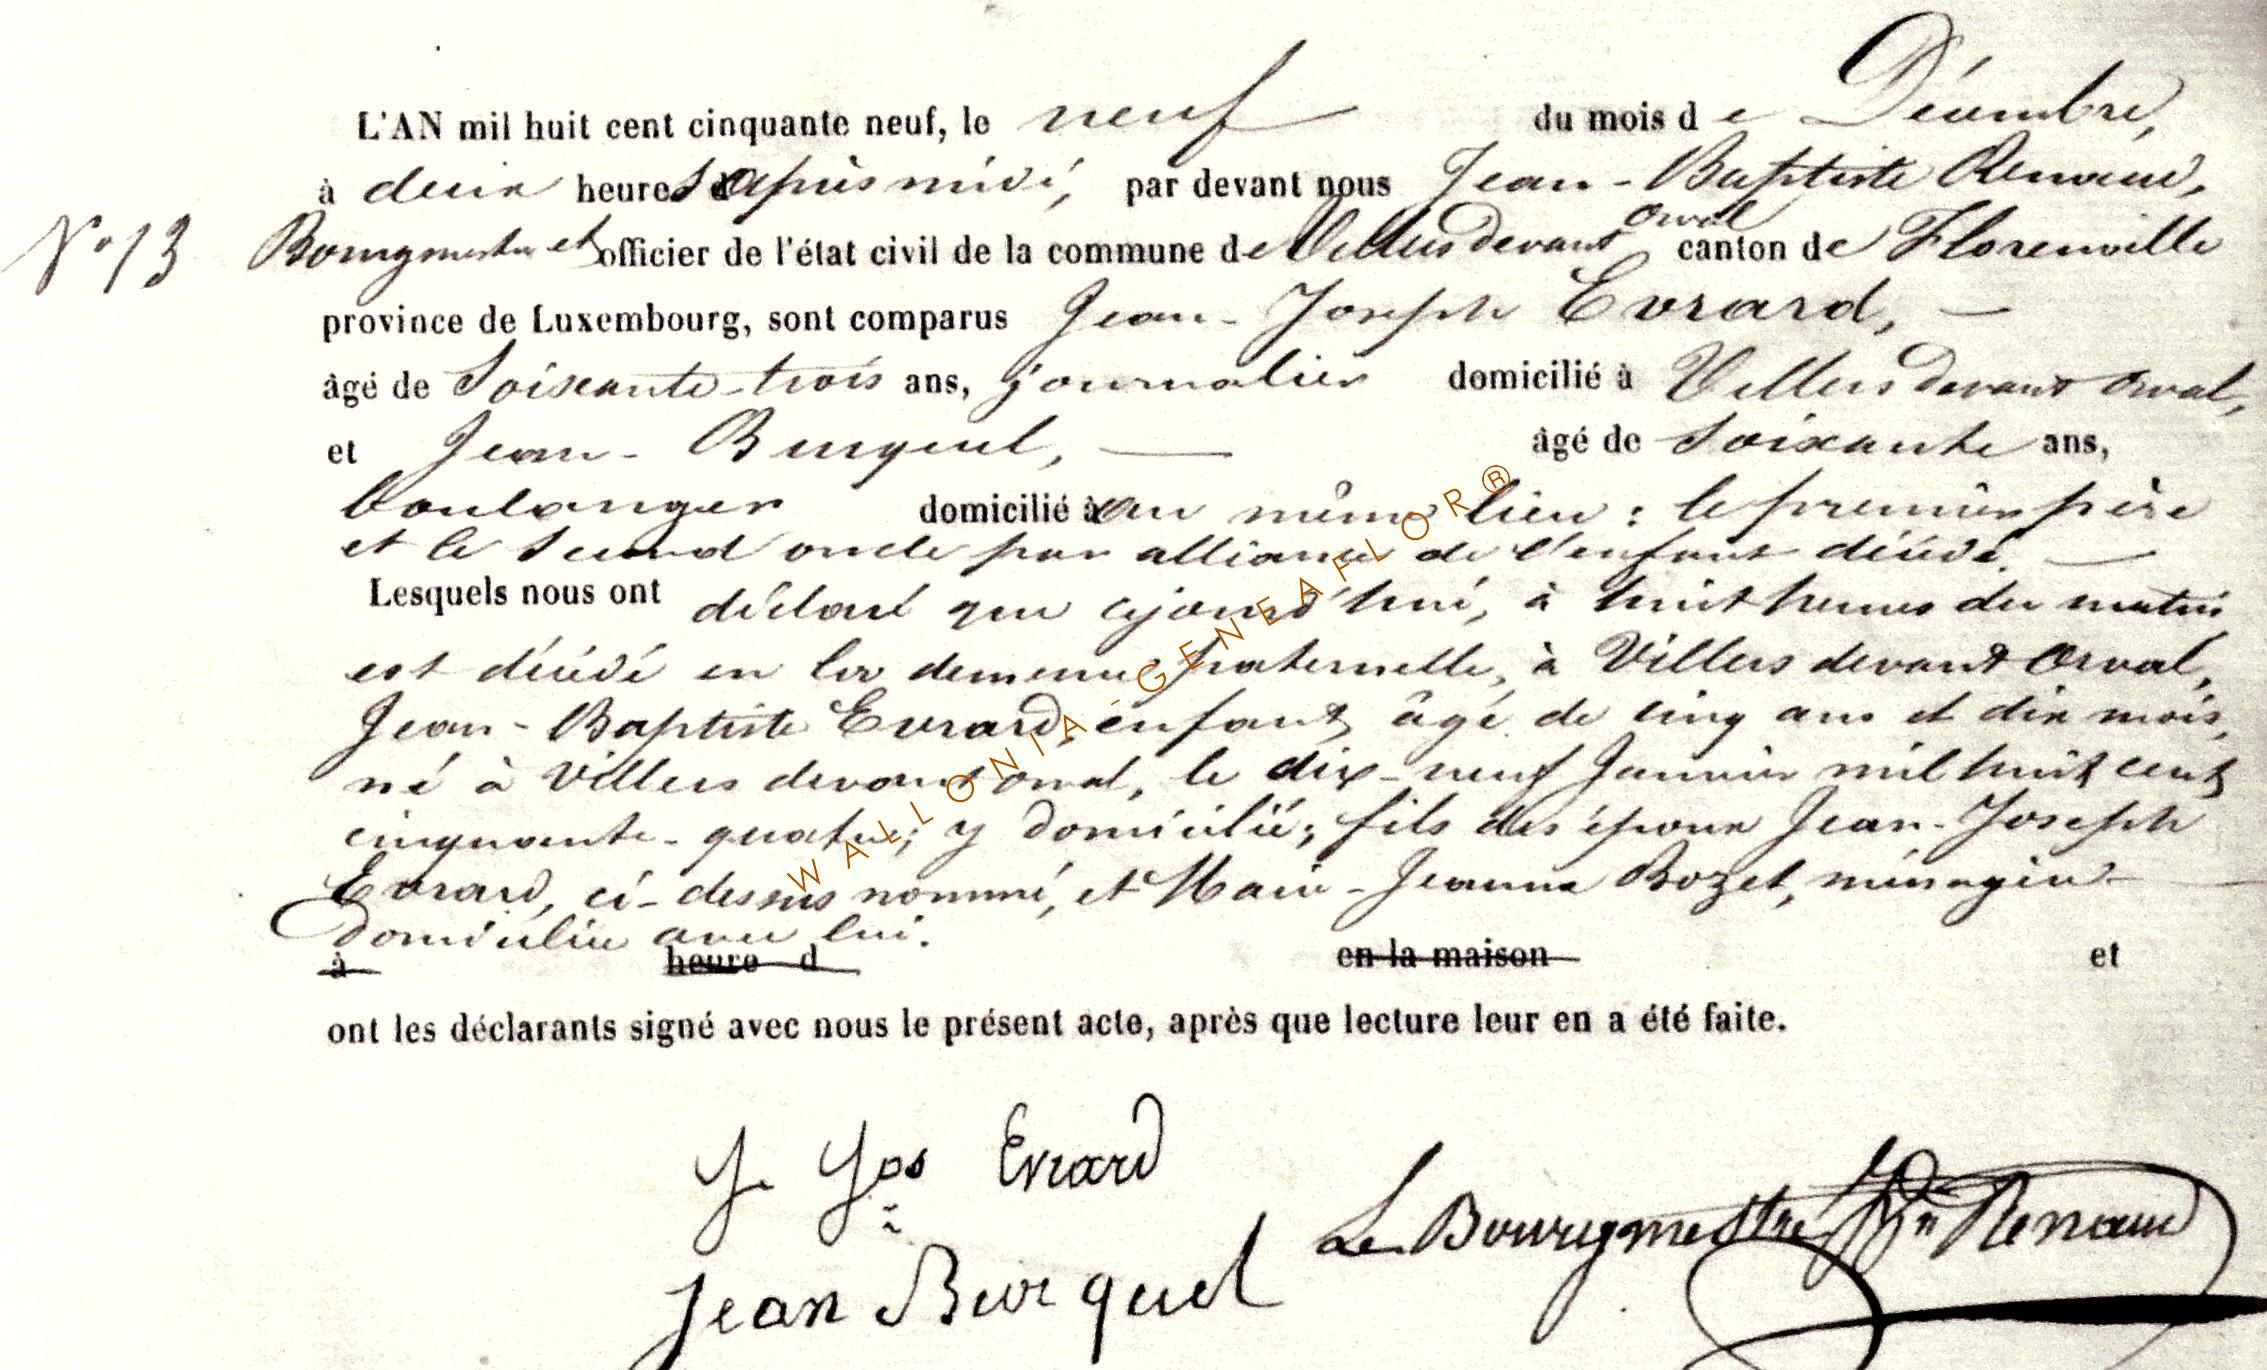 L'AN mil huit cent cinquante neuf, le neuf du mois de Décembre,
à deux heures après midi, par devant nous Jean-Baptiste Renaud,
N° 13 Bourgmestre et officier de l'état civil de la commune de Villers devant Orval canton de Florenville
province de Luxembourg, sont comparus Jean-Joseph Evrard, —
âgé de Soixante-trois ans, journalier domicilié à Villers devant Orval,
et Jean-Burquel, — âgé de Soixante ans,
boulanger domicilié au même lieu : le premier père
et le second oncle par alliance de l'enfant décédé. —
Lesquels nous ont déclaré que cejourd'hui, à huit heures du matin
est décédé en la demeure paternelle, à Villers devant Orval,
Jean-Baptiste Evrard, enfant âgé de cinq ans et dix mois,
né à Villers devant orval, le dix-neuf Janvier mil huit cent
cinquante-quatre; y domicilié; fils des époux Jean-Joseph
Evrard, ci-dessus nommé, et Marie-Jeanne Bozet, ménagère
domiciliée avec lui.
à heure d en la maison et
ont les déclarants signé avec nous le présent acte, après que lecture leur en a été faite.
J. Jos Evrard
Le Bourgmestre Renaud
Jean Burquel
WALLONIA-GENEAFLOR®